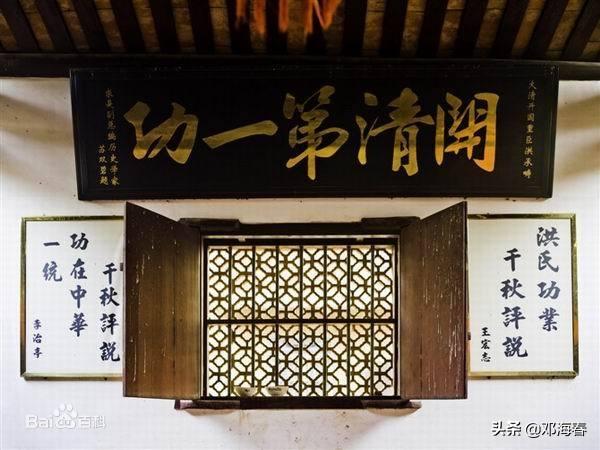 大清开国重臣洪承畴
開清第一功
求是副总编历史学家
苏双碧题
洪氏功業
千秋評説
王宏志
千秋評説
功在中華
一统
李治亭
Baidu百科
头条 @邓海春